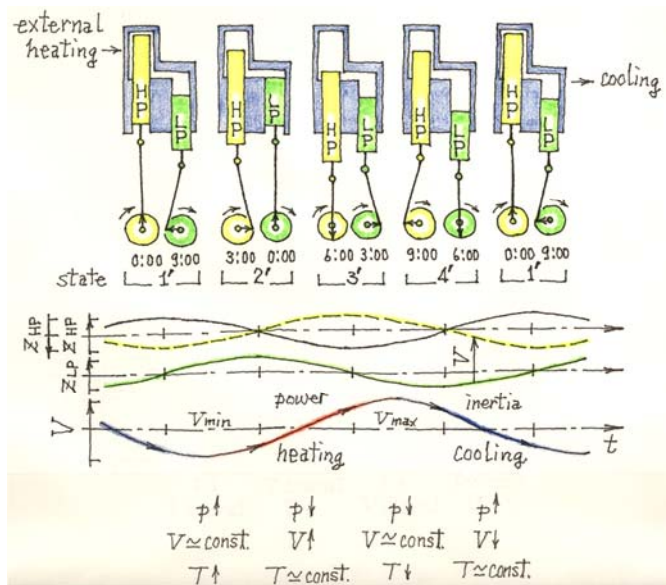 external heating
cooling
HP LP HP LP HP LP HP LP HP LP
0:00 9:00 3:00 0:00 6:00 3:00 9:00 6:00 0:00 9:00
state 1' 2' 3' 4' 1'
z HP z HP
V
z LP
power inertia
V Vmin Vmax t
heating cooling
p↑ p↓ p↓ p↑
V≃const. V↑ V≃const. V↓
T↑ T≃const. T↓ T≃const.